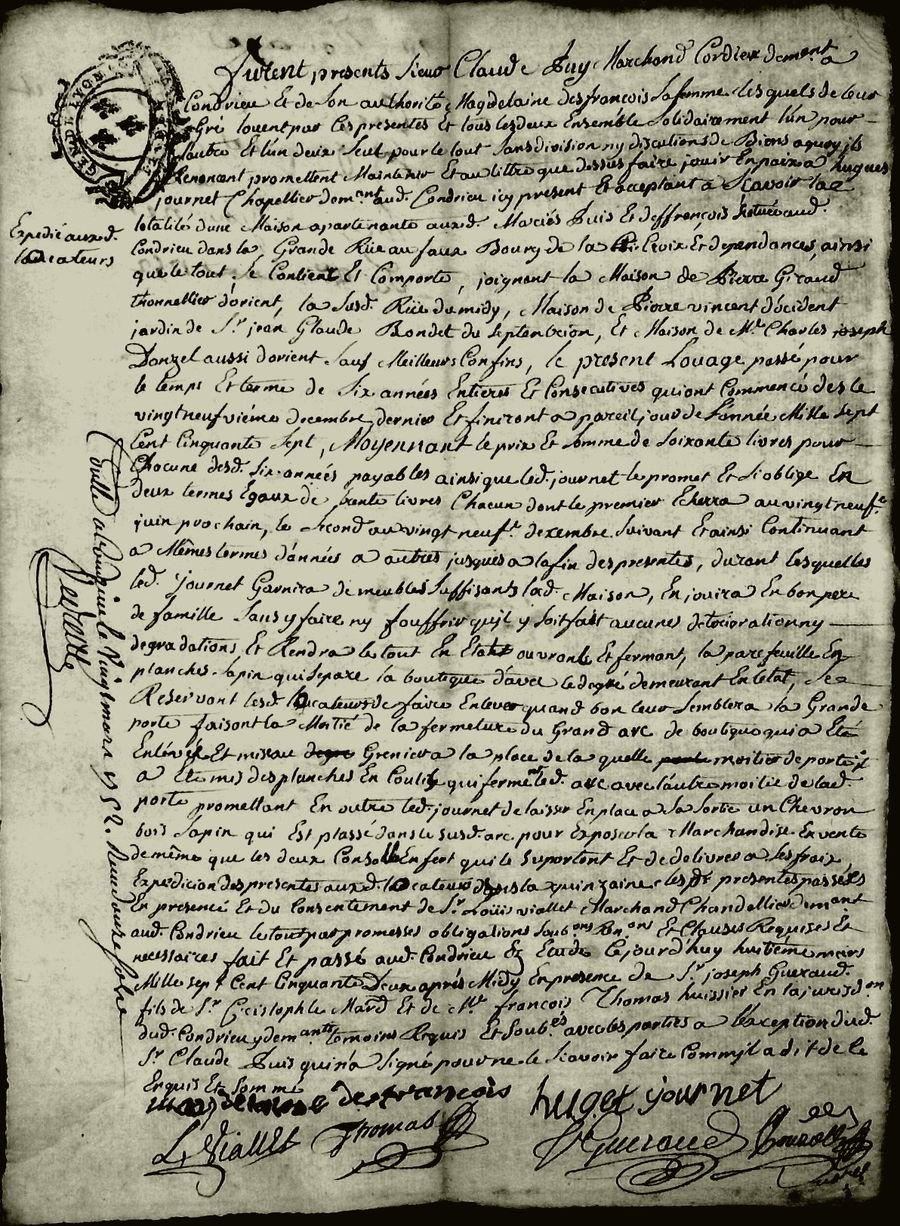 GEN. DE LYON
Furent presents sieur Claude Puy Marchand Cordier demant a
Condrieu Et de Son authorité Magdelaine desfrançois sa femme lesquels de leur
Gré louent par ces presentes et tous les deux Ensemble Solidairement l'un pour
l'autre Et l'un deux Seul pour le tout Sans division ny discutions de Biens a quoy ils
Renoncent promettent Maintenir Et au tiltre que dessus faire jouir En paix a hugues
journet Chapellier demant aud. Condrieu icy present Et acceptant a Scavoir la
totalité dune Maison apartenante auxd. Mariés Puis Et desfrançois aud.
Expedié auxd.
locateurs
Condrieu dans la Grande Rüe au faux Bourg de la Croix Et dependances, ainsi
que le tout Se Contient Et Comporte, joignant la Maison de Pierre Giraud
thonnellier d'orient, la susd. Rüe du midy, Maison de Pierre vincent d'occident
jardin de Sr. jean Claude Bondet du Septentrion, Et Maison de Mr. Charles joseph
Donzel aussi d'orient Sauf Meilleurs Confins, le present Louage passé pour
le temps Et terme de Six années Entieres Et Consecutives qui ont Commencé des le
vingt neufvieme decembre dernier Et finiront a pareil jour de l'année Mille Sept
Cent Cinquante Sept, Moyennant le prix Et Somme de Soixante livres pour
Chacune desd. Six années payables ainsi que led. journet le promet Et S'oblige En
deux termes Egaux de trente livres Chacun dont le premier Echerra au vingt neufe.
juin prochain, le Second au vingt neufe. dexembre Suivant Et ainsi Continuant
a Mêmes termes d'années a autres jusques a la fin des presentes, durant lesquelles
led. journet Garnira de meubles Suffisants lad. Maison, En jouira En bon pere
de famille Sans y faire ny Souffrir qu'il y Soit fait aucunes deteriorations ny
degradations, Et Rendra le tout En Etat ouvrant Et fermant, la parefeuille En
planches Sapin qui Separe la boutique d'avec le degré demeurant En l'etat, Se
Reservant lesd. locateurs de faire Enlever quand bon leur Semblera la Grande
porte faisant la Moitié de la fermeture du Grand arc de boutique qui a Eté
Enlevé Et mis au Grenier a la place de laquelle moitié de porte il
a Eté mis des planches En Coulisse qui ferment led. arc avec l'autre moitié de lad.
porte promettant En outre led. journet de laisser En place a Sa Sortie un Chevron
bois Sapin qui Est plassé dans le susd. arc pour Exposer la Marchandise En vente
de même que les deux Consolle En fert qui le Suportent Et de delivrer a Ses fraix
Expedicion des presentes auxd. locateurs dans la quinzaine, lesd. presentes passées
En presence Et du Consentement de Sr. Loüis viallet Marchand Chandellier demant
aud. Condrieu le tout par promesses obligations Soub.ons Ren.ons Et Clauses Requises Et
necessaires fait Et passé aud. Condrieu Etude Cejourd'huy huitieme mars
Mille Sept Cent Cinquante Deux aprés Midy En presence de Sr. joseph Gueraud
fils de Sr. Cristophle Mard Et de Mr. françois Thomas huissier En la jurisd.on
dud. Condrieu y demants. temoins Requis Et Soub.és avec les parties a l'exception dud.
Sr. Claude Puis qui n'a Signé pour ne le Scavoir faire Comm'il a dit de ce
Enquis Et Sommé
magdelaine desfrançois
huget journet
L. Viallet
Thomas
Gueraud